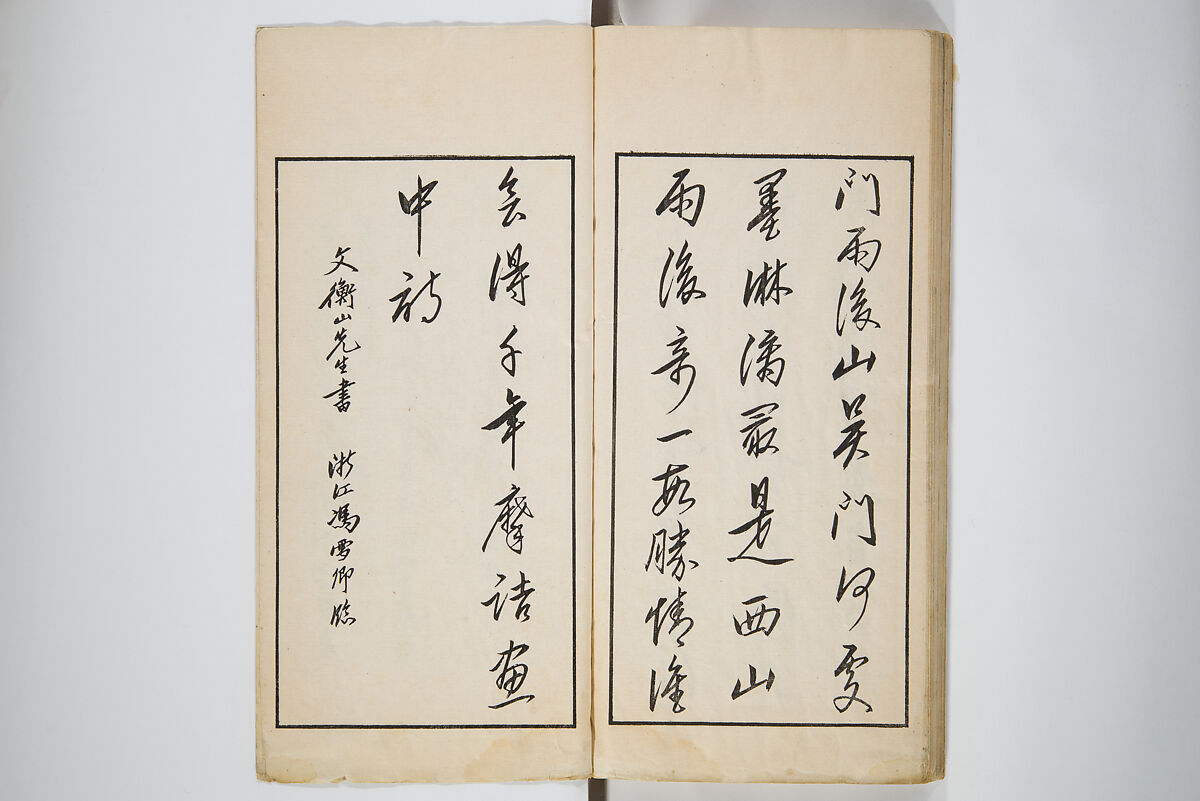 門雨後山吳門何處
墨淋漓最是西山
雨後奇一段勝情誰
會得千年摩詰畫
中詩
文衡山先生書　浙江馮雪卿臨